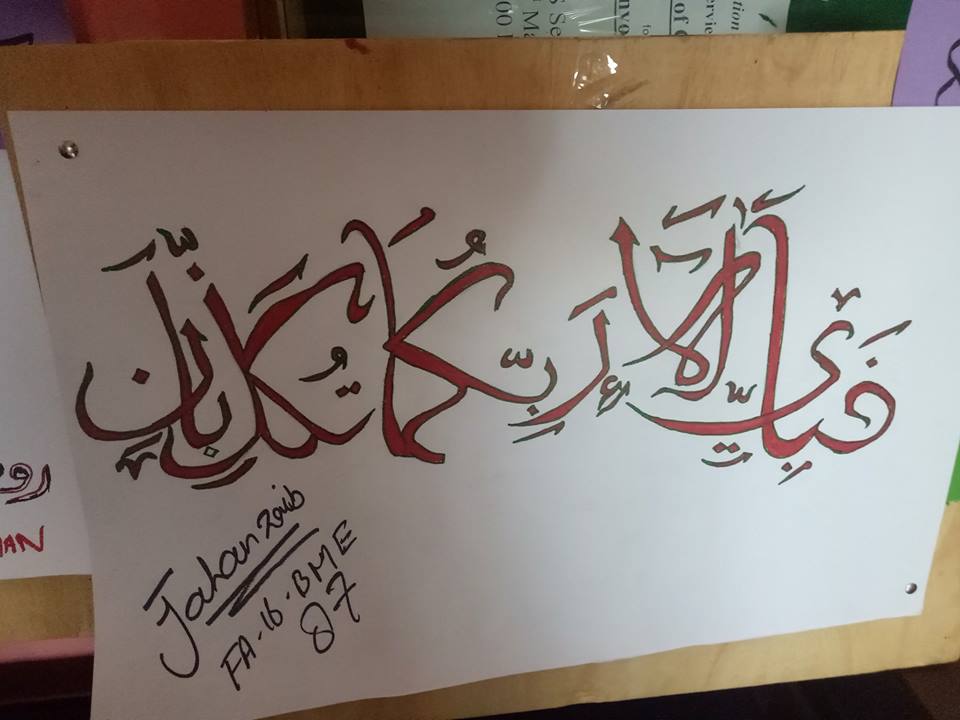 فَبِأَيِّ آلَاءِ رَبِّكُمَا تُكَذِّبَانِ
Jahanzaib
FA-16-BME
87